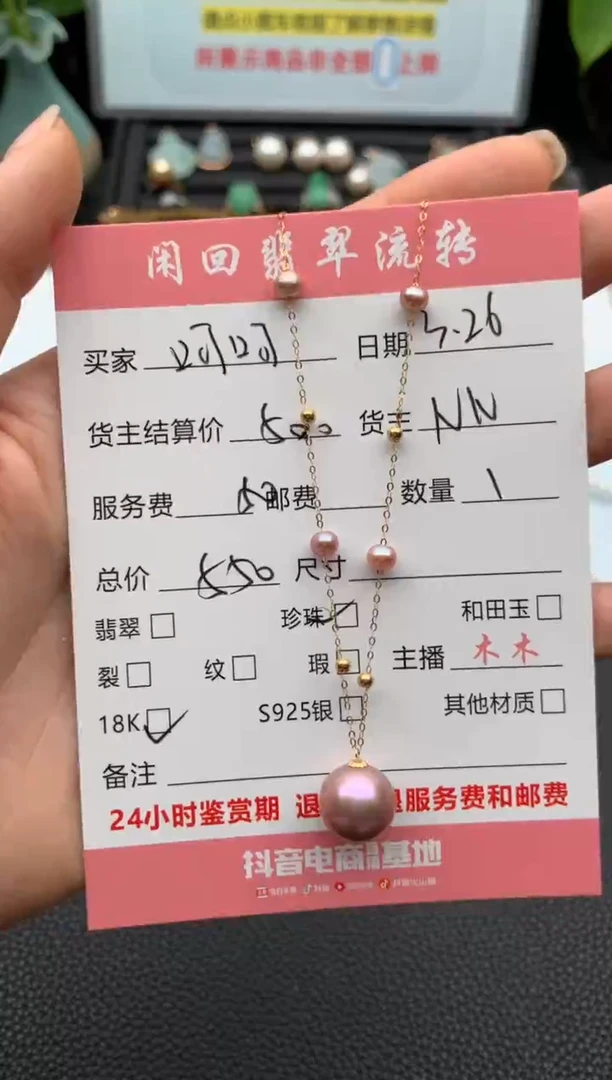 所展示商品非全部
上架
闲回翡翠流转
买家 日期 5.26
货主结算价 500 货主 NN
服务费 50 邮费 数量 1
总价 550 尺寸
翡翠 珍珠 和田玉
裂 纹 瑕 主播 木木
18K S925银 其他材质
备注
24小时鉴赏期 退 服务费和邮费
抖音电商 基地